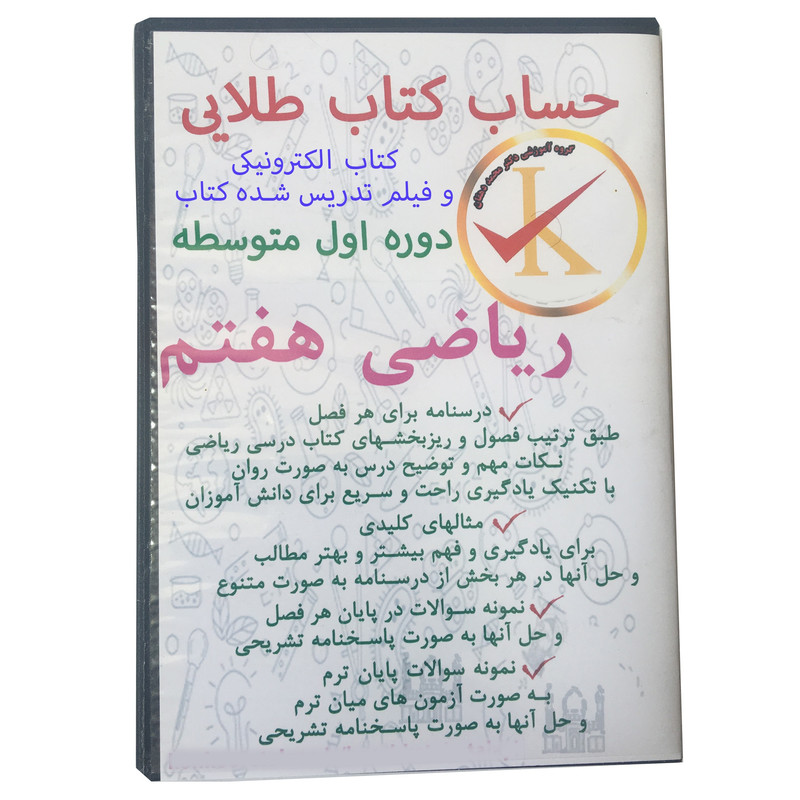 حساب کتاب طلایی
کتاب الکترونیکی
و فیلم تدریس شده کتاب
دوره اول متوسطه
گروه آموزشی دکتر محمد
K
ریاضی هفتم
درسنامه برای هر فصل
طبق ترتیب فصول و ریزبخشهای کتاب درسی ریاضی
نکات مهم و توضیح درس به صورت روان
با تکنیک یادگیری راحت و سریع برای دانش آموزان
مثالهای کلیدی
برای یادگیری و فهم بیشتر و بهتر مطالب
و حل آنها در هر بخش از درسنامه به صورت متنوع
نمونه سوالات در پایان هر فصل
و حل آنها به صورت پاسخنامه تشریحی
نمونه سوالات پایان ترم
به صورت آزمون های میان ترم
و حل آنها به صورت پاسخنامه تشریحی